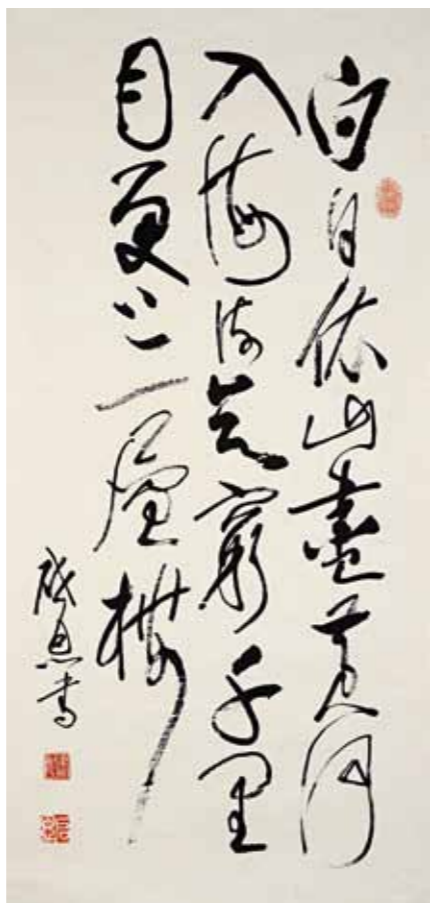 白日依山盡黃河
入海流欲窮千里
目更上一層樓
書